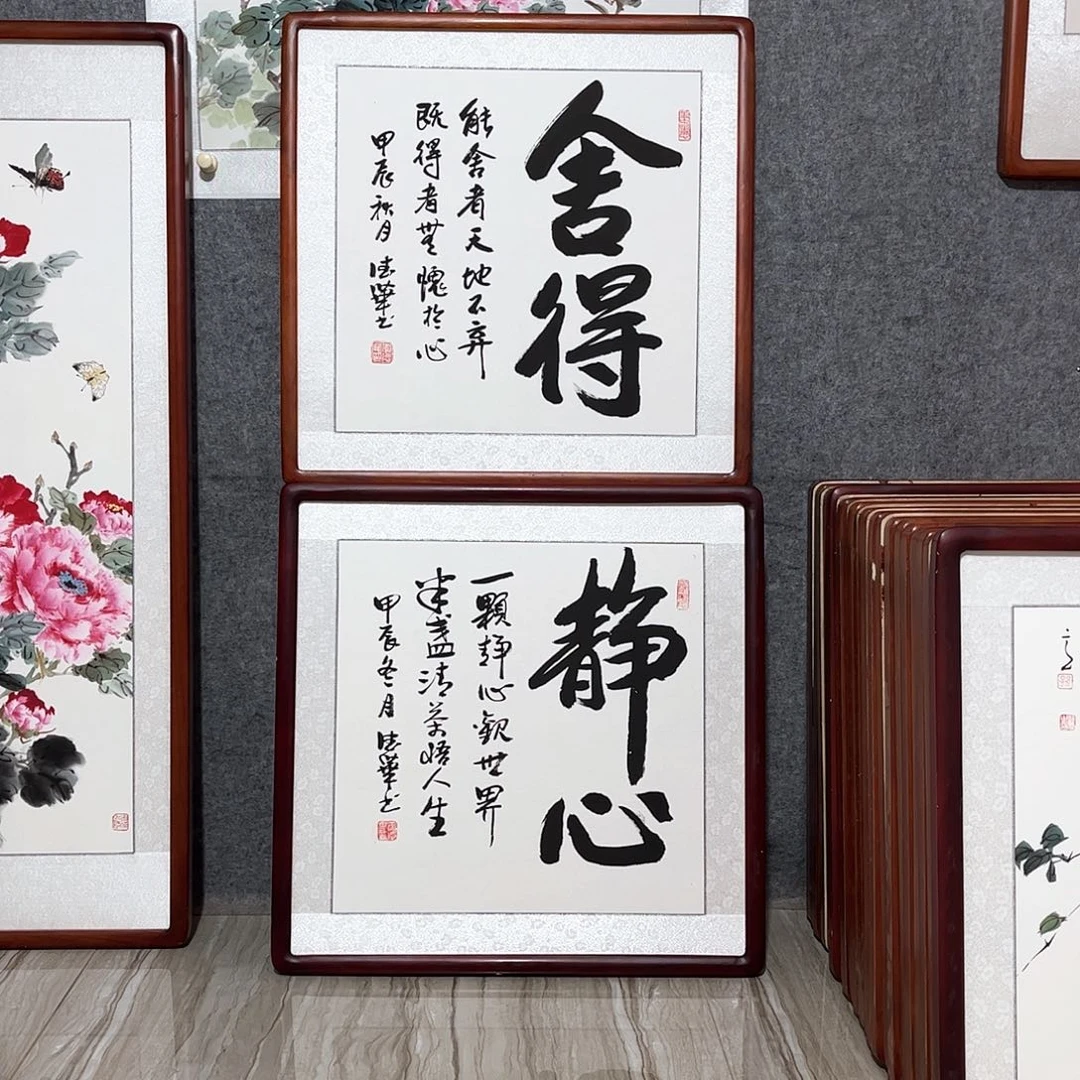 舍得
能舍者天地不弃
既得者無愧於心
甲辰秋月 德華书
静心
一顆静心觀世界
半盏清茶悟人生
甲辰冬月 德華书